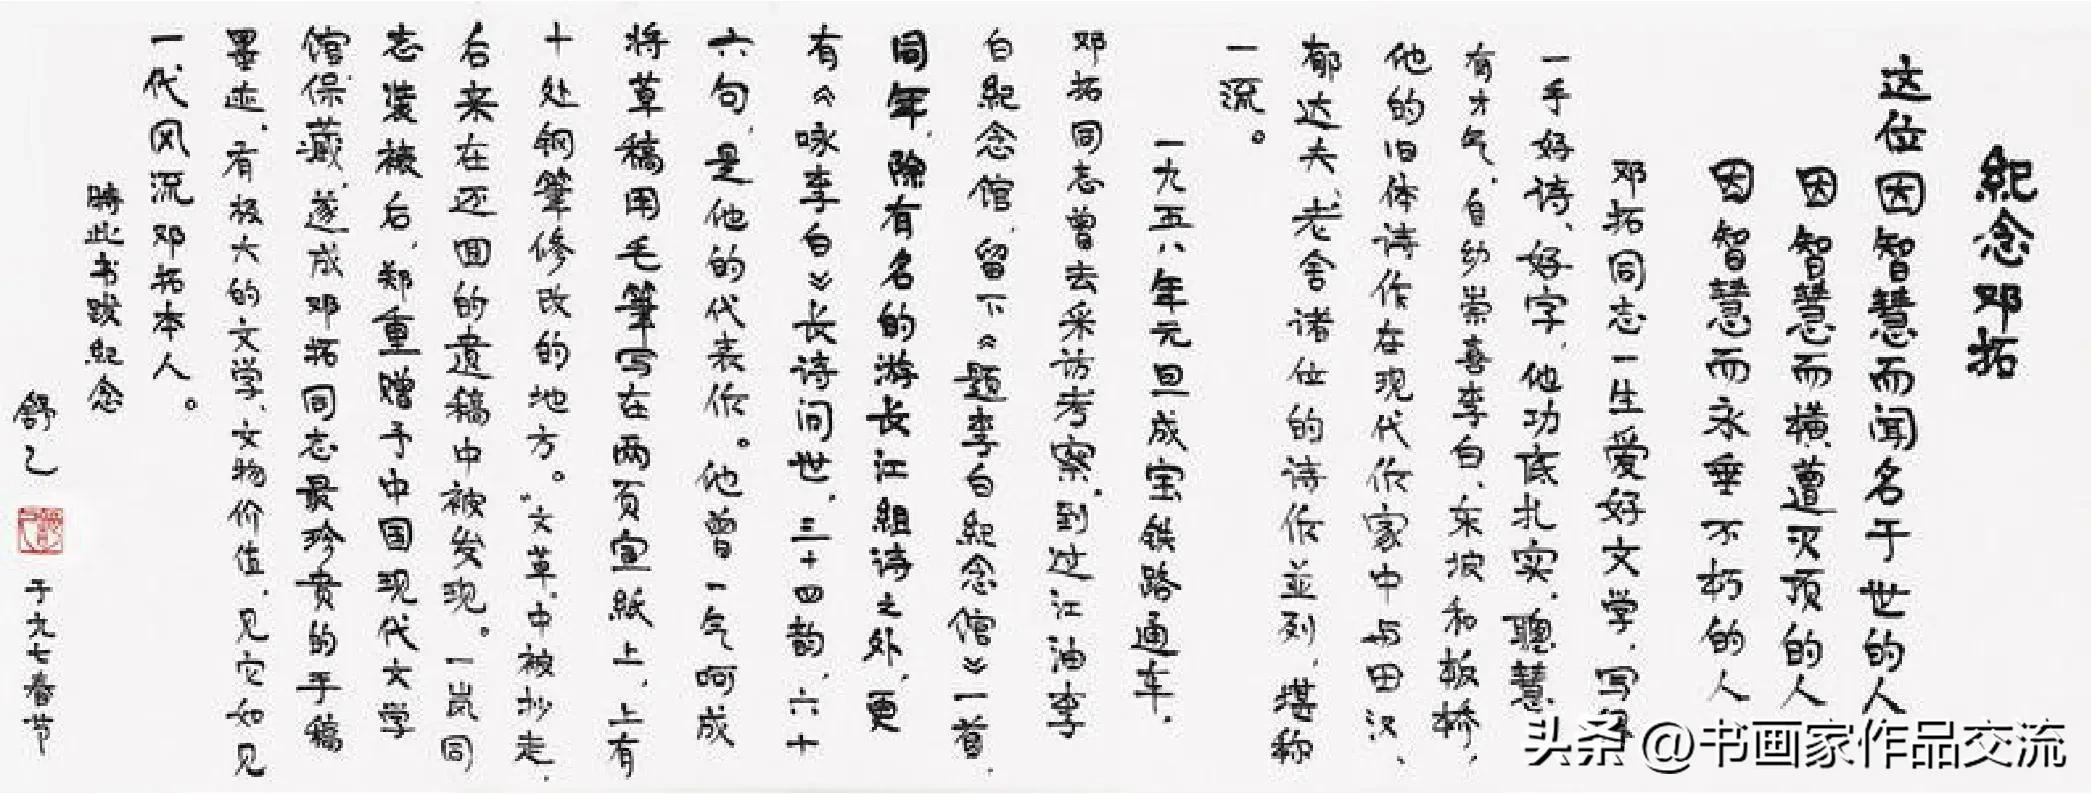 紀念邓拓
这位因智慧而闻名于世的人
因智慧而横遭灭顶的人
因智慧而永垂不朽的人
邓拓同志一生爱好文学，写得
一手好诗、好字，他功底扎实，聰慧
有才气，自幼崇喜李白、东坡和板桥，
他的旧体诗作在现代作家中与田汉、
郁达夫、老舍诸位的诗作並列，堪称
一流。
一九五八年元旦成宝铁路通车，
邓拓同志曾去采访考察，到过江油李
白紀念馆，留下《题李白紀念馆》一首，
同年，除有名的游长江組诗之外，更
有《咏李白》长诗问世，三十四韵，六十
六句，是他的代表作。他曾一气呵成
将草稿用毛筆写在两页宣紙上，上有
十处钢筆修改的地方。“文革”中被抄走，
后来在还回的遗稿中被发现。一岚同
志装裱后，郑重赠予中国现代文学
馆保藏，遂成邓拓同志最珍贵的手稿
墨迹，有极大的文学、文物价值，见它如见
一代风流邓拓本人。
時此书跋紀念
舒乙
于九七春节
头条 @书画家作品交流